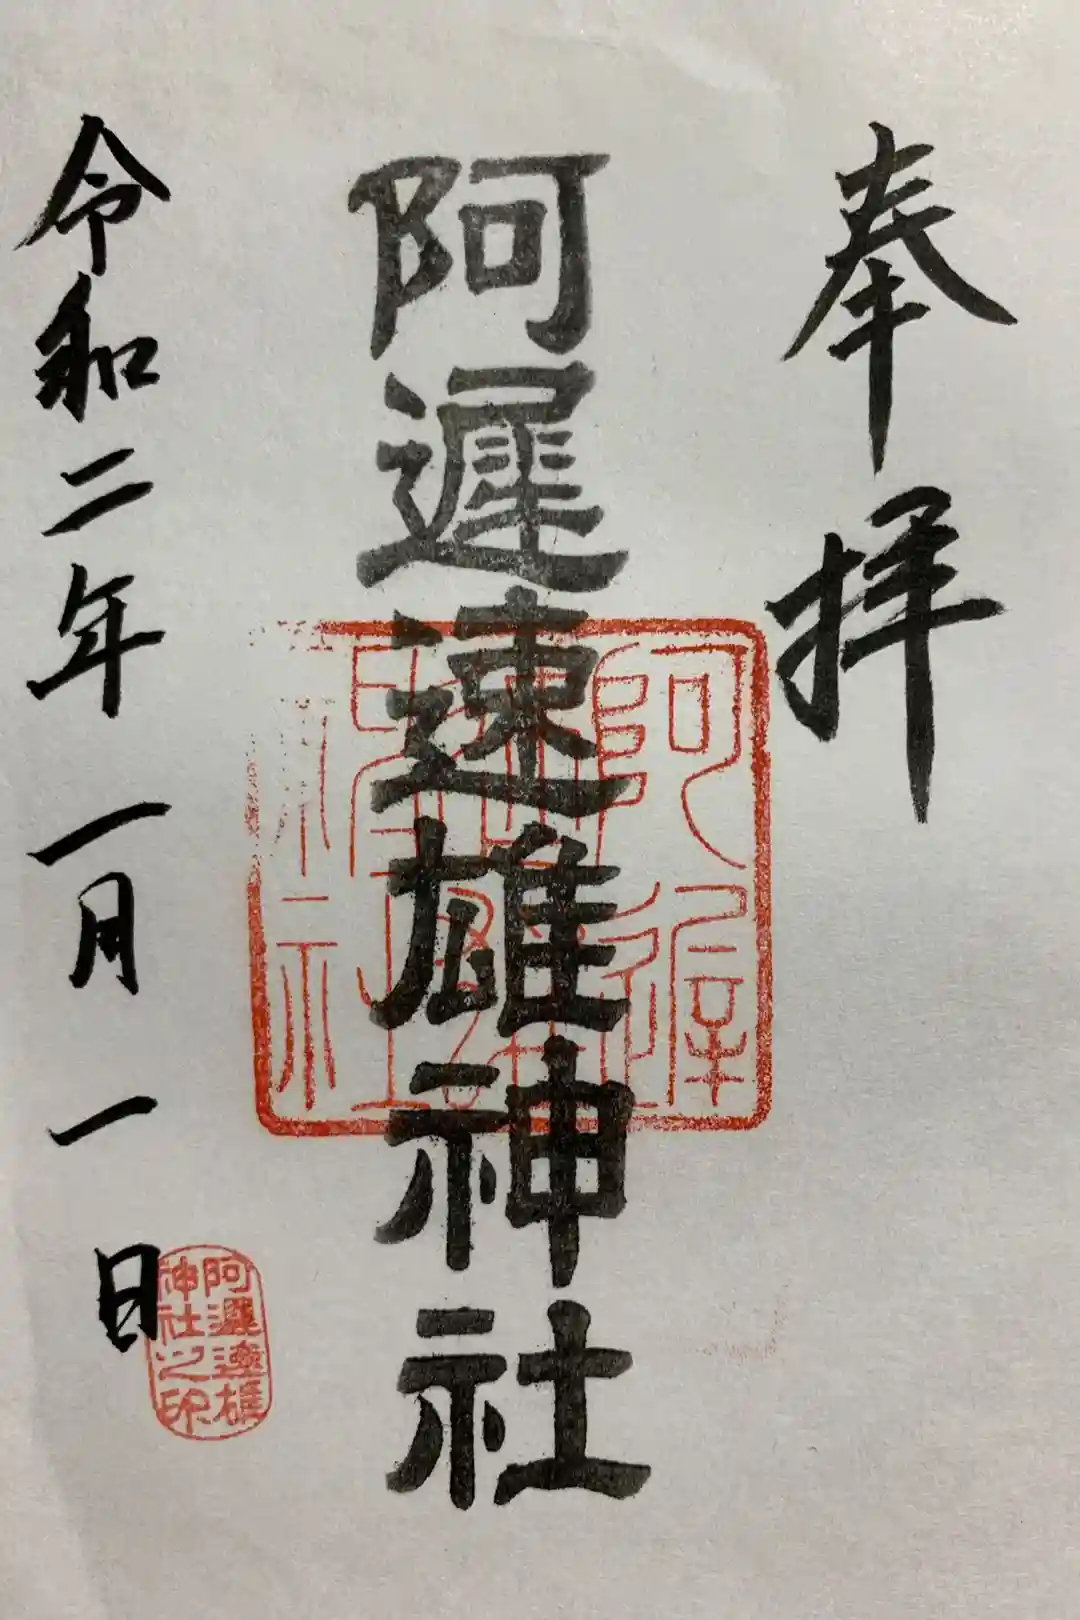 奉拝
阿遅速雄神社
令和二年一月一日
阿遅速雄
神社之印